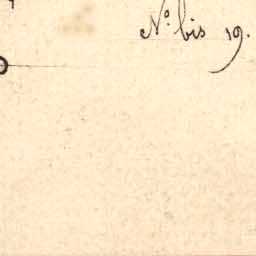 Nº. bis 19.